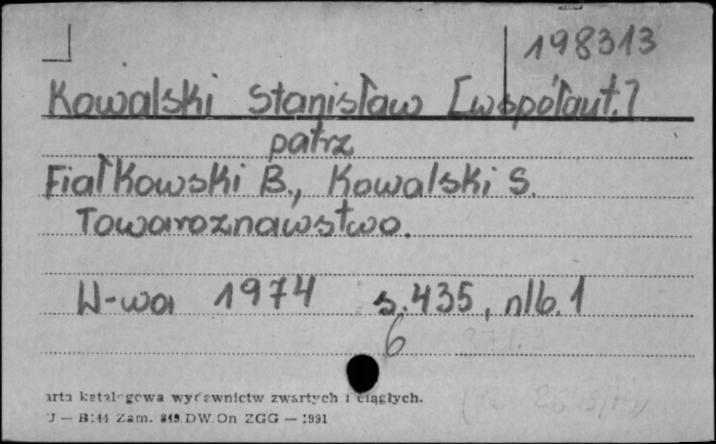 198313
Kowalski Stanisław [współaut.]
patrz
Fiałkowski B., Kowalski S.
Towaroznawstwo.
W-wa 1974 s. 435, nlb. 1
6
arta katalogowa wydawnictw zwartych i ciągłych.
J — B144 Zam. 849 DW. On ZGG — 1991